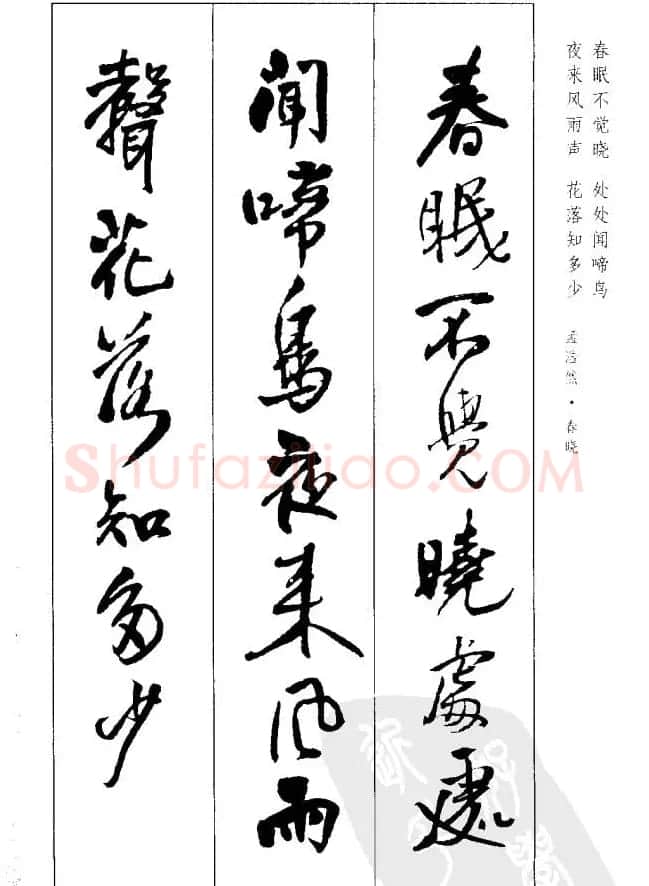 春眠不觉晓 处处闻啼鸟
夜来风雨声 花落知多少
孟浩然·春晓
春眠不覺曉處處
聞啼鳥夜来风雨
聲花落知多少
Shufaziliao.COM